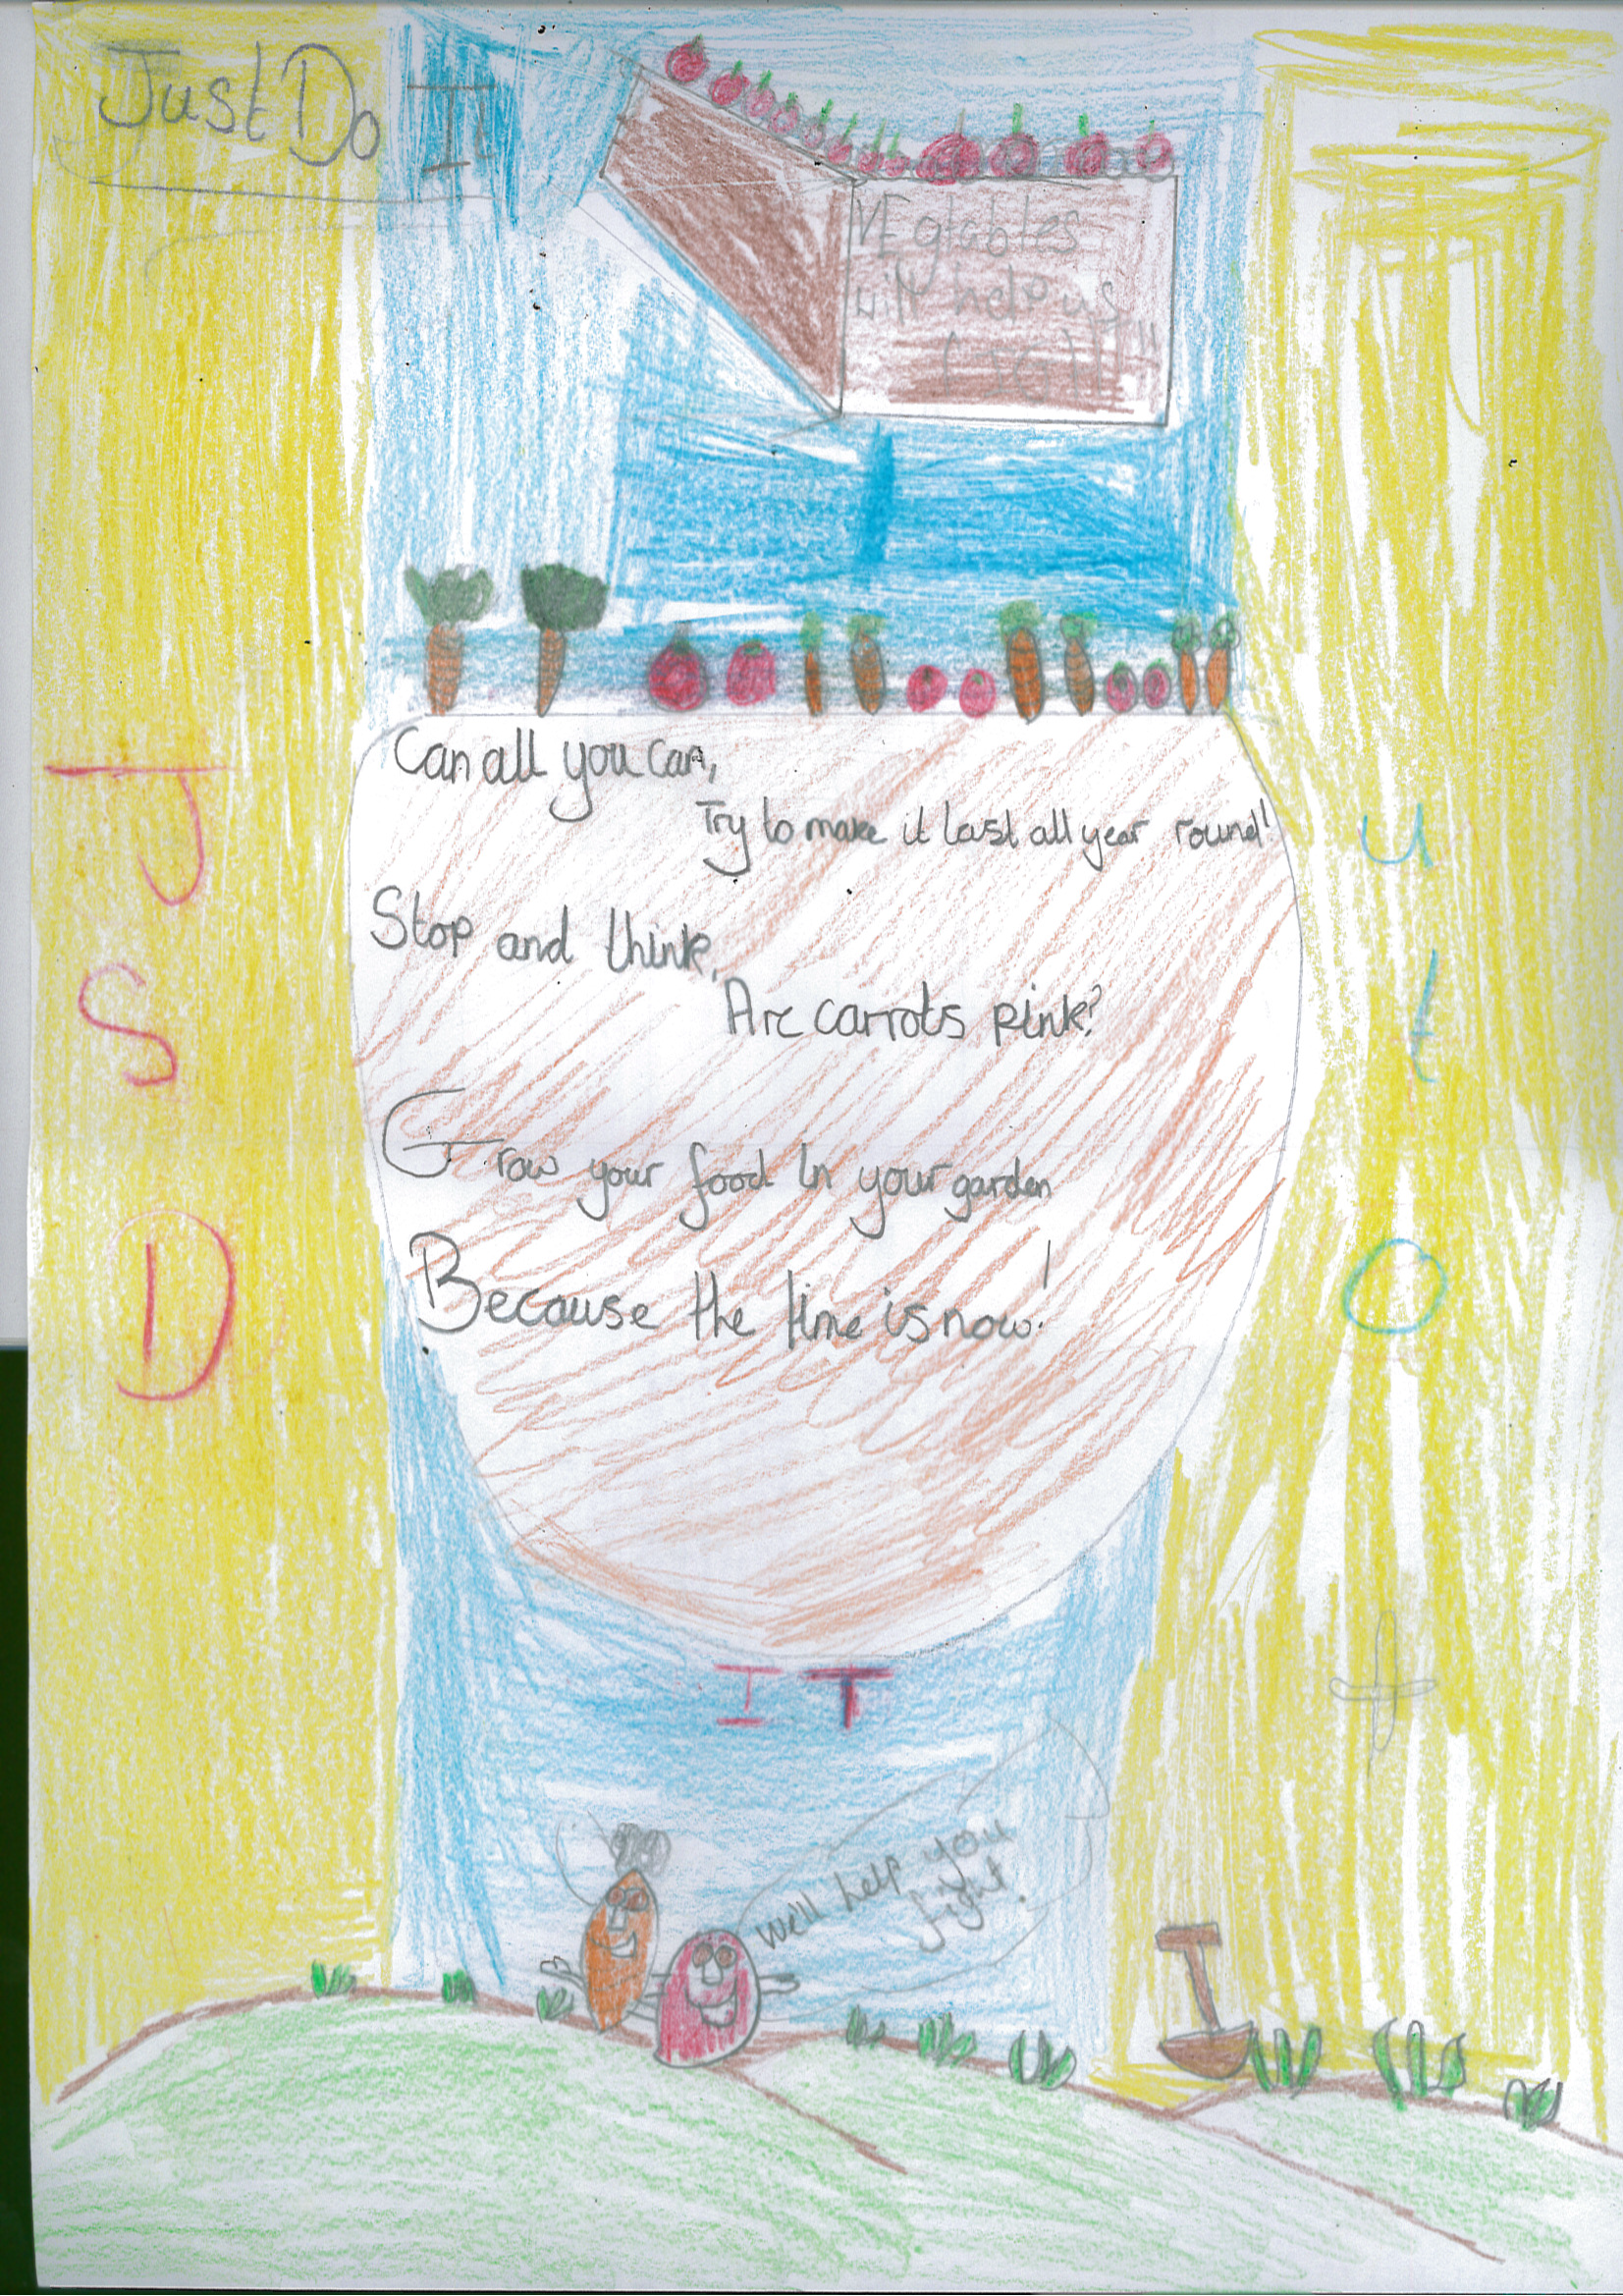 Just Do IT
VEgtables
will help us
FIGHT"
Can all you can,
Try to make it last all year round!
Stop and think,
Are carrots pink?
Grow your food in your garden
Because the time is now!
J u
S t
D O
IT
We'll help you
fight.